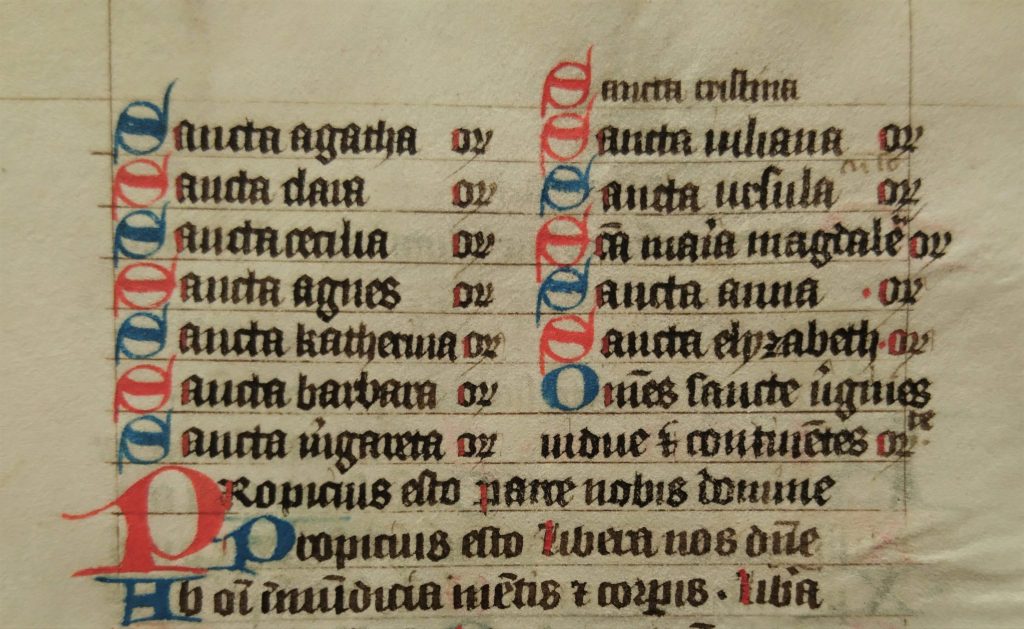 Sancta agatha or
Sancta clara or
Sancta cecilia or
Sancta agnes or
Sancta katherina or
Sancta barbara or
Sancta m̄gareta or
Sancta cristina
Sancta iuliana or
Sancta ursula or
Sc̄a maria magdalē or
Sancta anna or
Sancta elyzabeth or
Om̄es sancte v̄gines
uidue ⁊ contine̅tes or
PRopicius esto parce nobis domine
Propicius esto libera nos dn̄e
Ab oī īmūdicia me̅tis ⁊ corpis . lib̄a